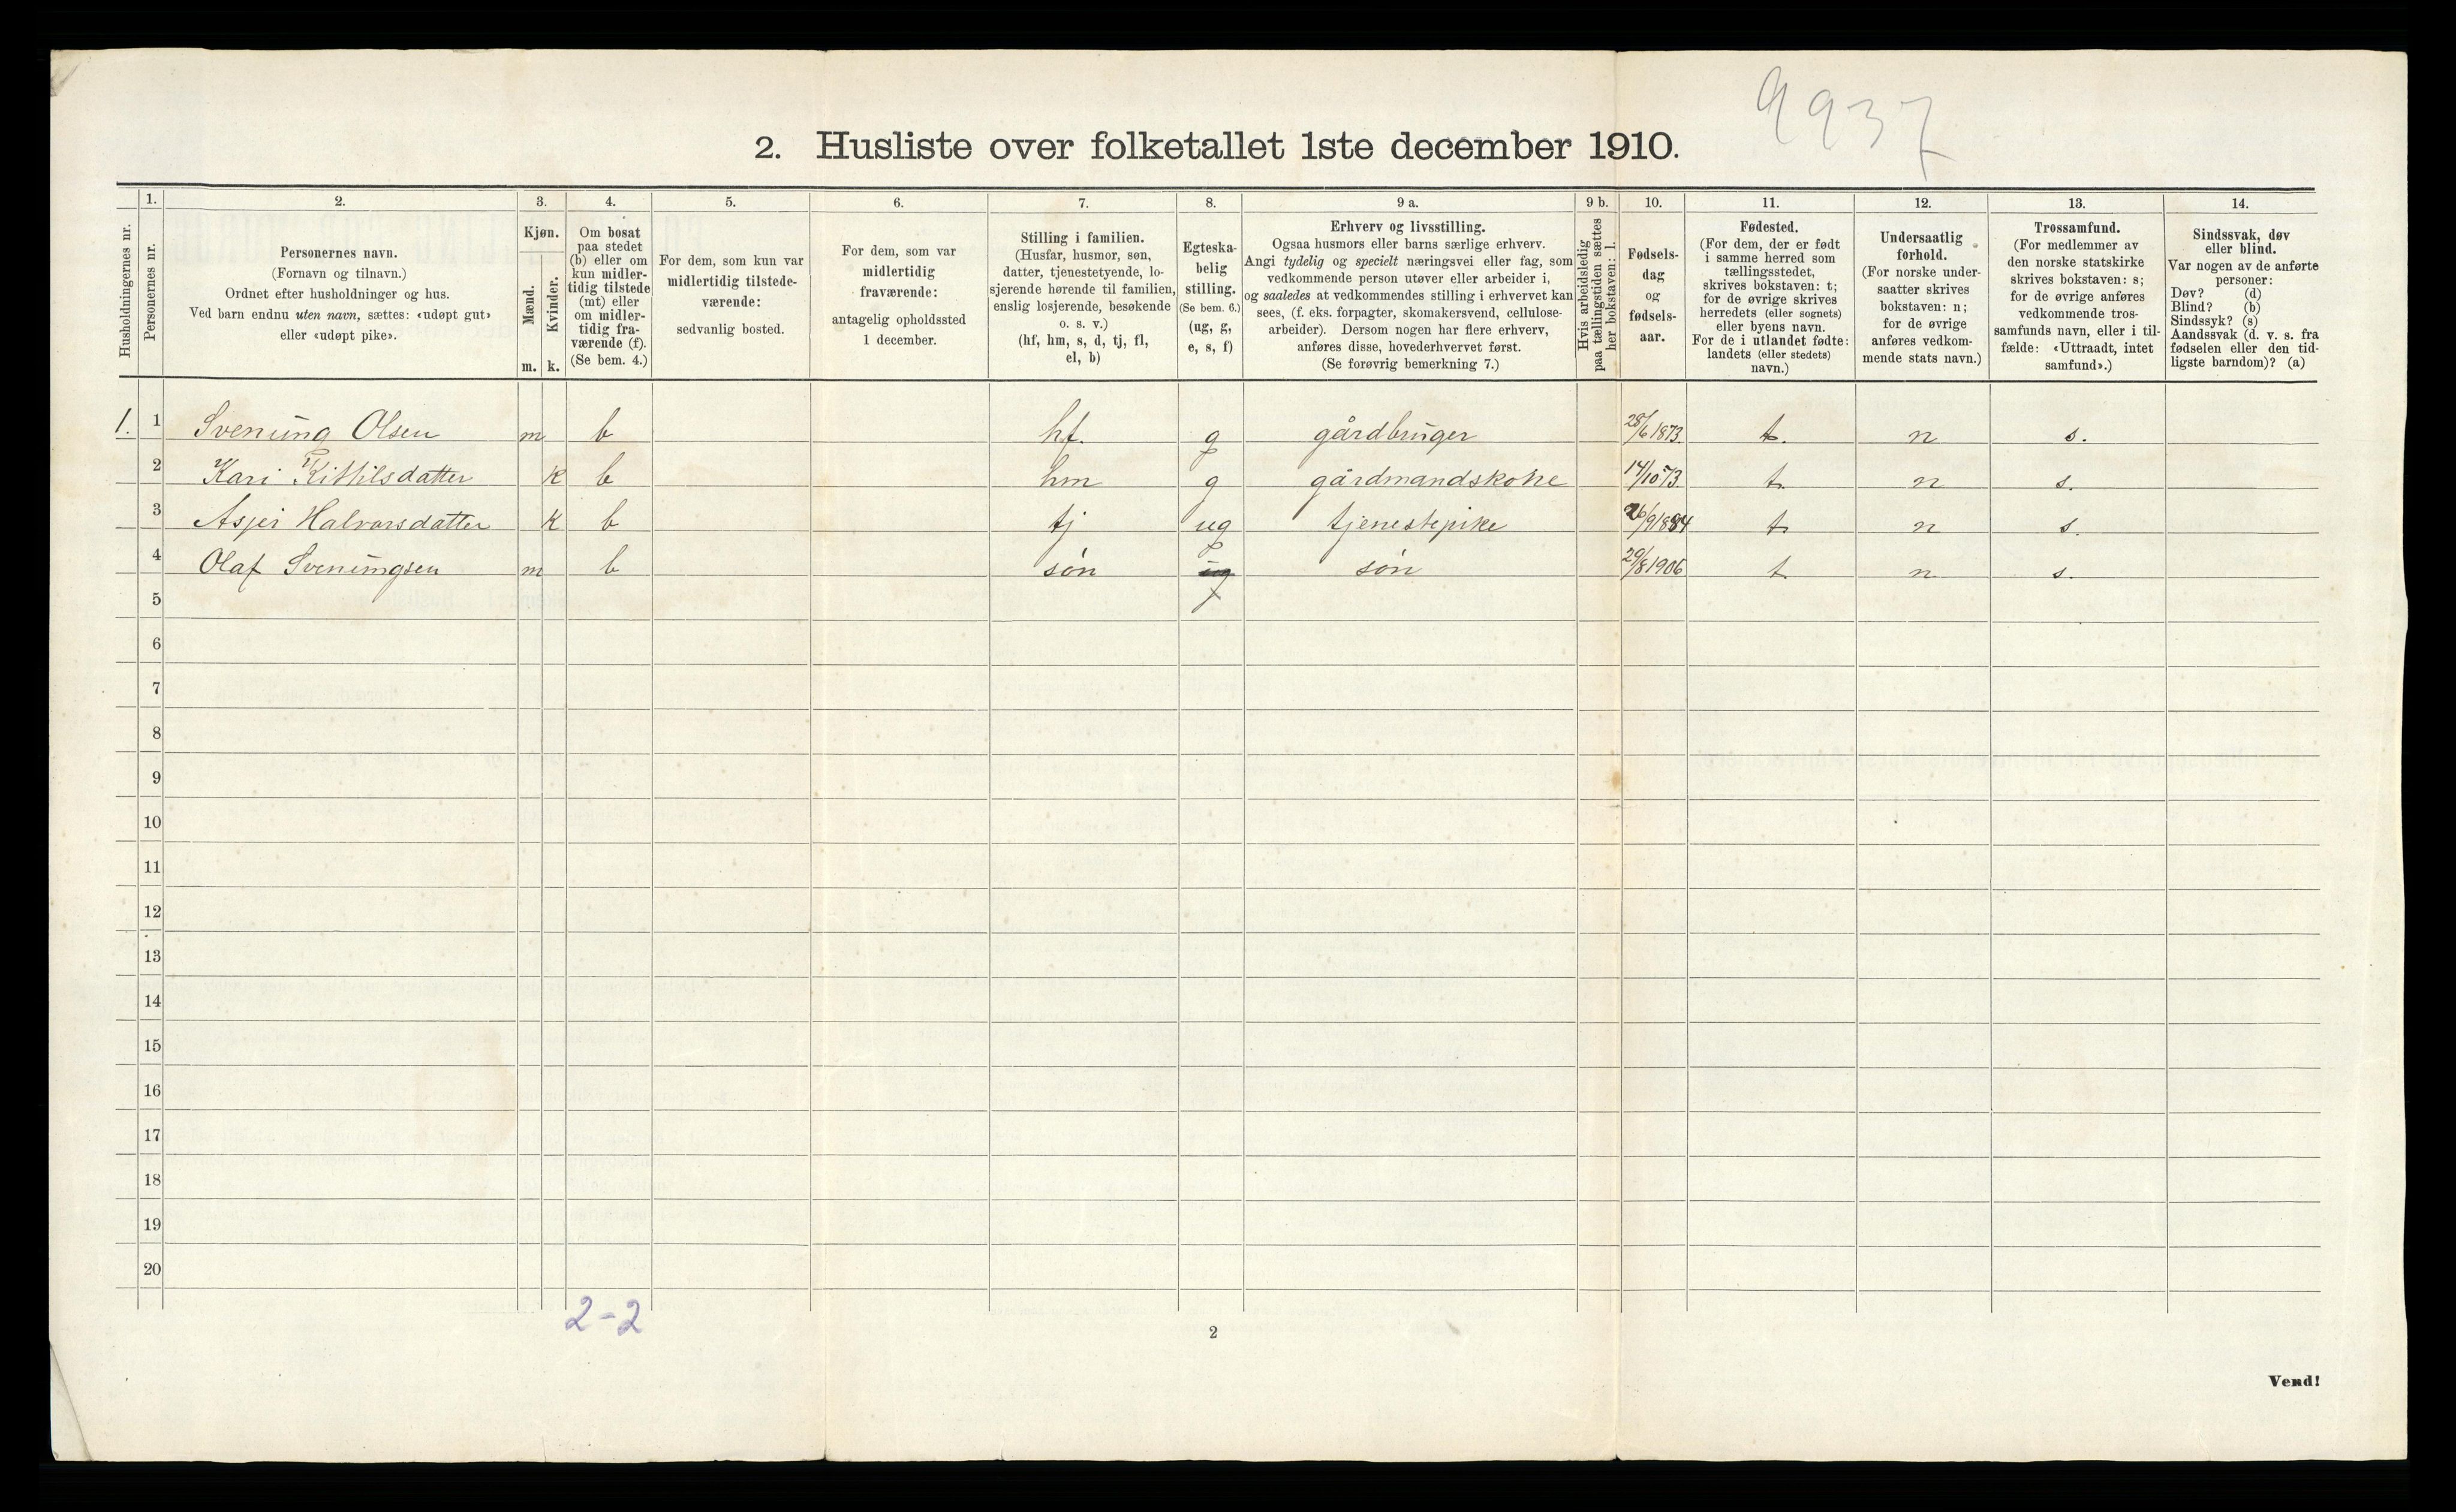 9937
2. Husliste over folketallet 1ste december 1910.
Husholdningernes nr.
1.
Personernes nr.
2.
Personernes navn.
(Fornavn og tilnavn.)
Ordnet efter husholdninger og hus.
Ved barn endnu uten navn, sættes: «udøpt gut»
eller «udøpt pike».
3.
Kjøn.
Mænd.
Kvinder.
m. k.
4.
Om bosat
paa stedet
(b) eller om
kun midler-
tidig tilstede
(mt) eller
om midler-
tidig fra-
værende (f).
(Se bem. 4.)
5.
For dem, som kun var
midlertidig tilstede-
værende:
sedvanlig bosted.
6.
For dem, som var
midlertidig
fraværende:
antagelig opholdssted
1 december.
7.
Stilling i familien.
(Husfar, husmor, søn,
datter, tjenestetyende, lo-
sjerende hørende til familien,
enslig losjerende, besøkende
o. s. v.)
(hf, hm, s, d, tj, fl,
el, b)
8.
Egteska-
belig
stilling.
(Se bem. 6.)
(ug, g,
e, s, f)
9 a.
Erhverv og livsstilling.
Ogsaa husmors eller barns særlige erhverv.
Angi tydelig og specielt næringsvei eller fag, som
vedkommende person utøver eller arbeider i,
og saaledes at vedkommendes stilling i erhvervet kan
sees, (f. eks. forpagter, skomakersvend, cellulose-
arbeider). Dersom nogen har flere erhverv,
anføres disse, hovederhvervet først.
(Se forøvrig bemerkning 7.)
9 b.
Hvis arbeidsledig
paa tællingstiden sættes
her bokstaven: l.
10.
Fødsels-
dag
og
fødsels-
aar.
11.
Fødested.
(For dem, der er født
i samme herred som
tællingsstedet,
skrives bokstaven: t;
for de øvrige skrives
herredets (eller sognets)
eller byens navn.
For de i utlandet fødte:
landets (eller stedets)
navn.)
12.
Undersaatlig
forhold.
(For norske under-
saatter skrives
bokstaven: n;
for de øvrige
anføres vedkom-
mende stats navn.)
13.
Trossamfund.
(For medlemmer av
den norske statskirke
skrives bokstaven: s;
for de øvrige anføres
vedkommende tros-
samfunds navn, eller i til-
fælde: «Uttraadt, intet
samfund».)
14.
Sindssvak, døv
eller blind.
Var nogen av de anførte
personer:
Døv? (d)
Blind? (b)
Sindssyk? (s)
Aandssvak (d. v. s. fra
fødselen eller den tid-
ligste barndom)? (a)
1. 1 Svenung Olsen m b hf. g gårdbruger 28/6 1873. t. n s.
2 Kari Kittilsdatter k b hm g gårdmandskone 14/10 73 t. n s.
3 Asjer Halvorsdatter k b tj ug tjenestepike 26/9 1884 t. n s.
4 Olaf Svenungsen m b søn ug søn 29/8 1906 t. n s.
5
6
7
8
9
10
11
12
13
14
15
16
17
18
19
20
2-2
2
Vend!